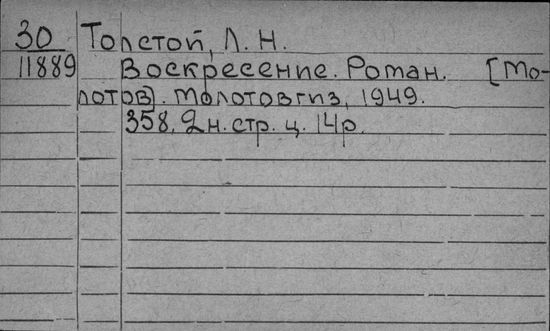 30 Толстой, Л. Н.
11889 Воскресение. Роман. [Мо-
лотов]. Молотовгиз, 1949.
358, 2 н. стр. ц. 14 р.